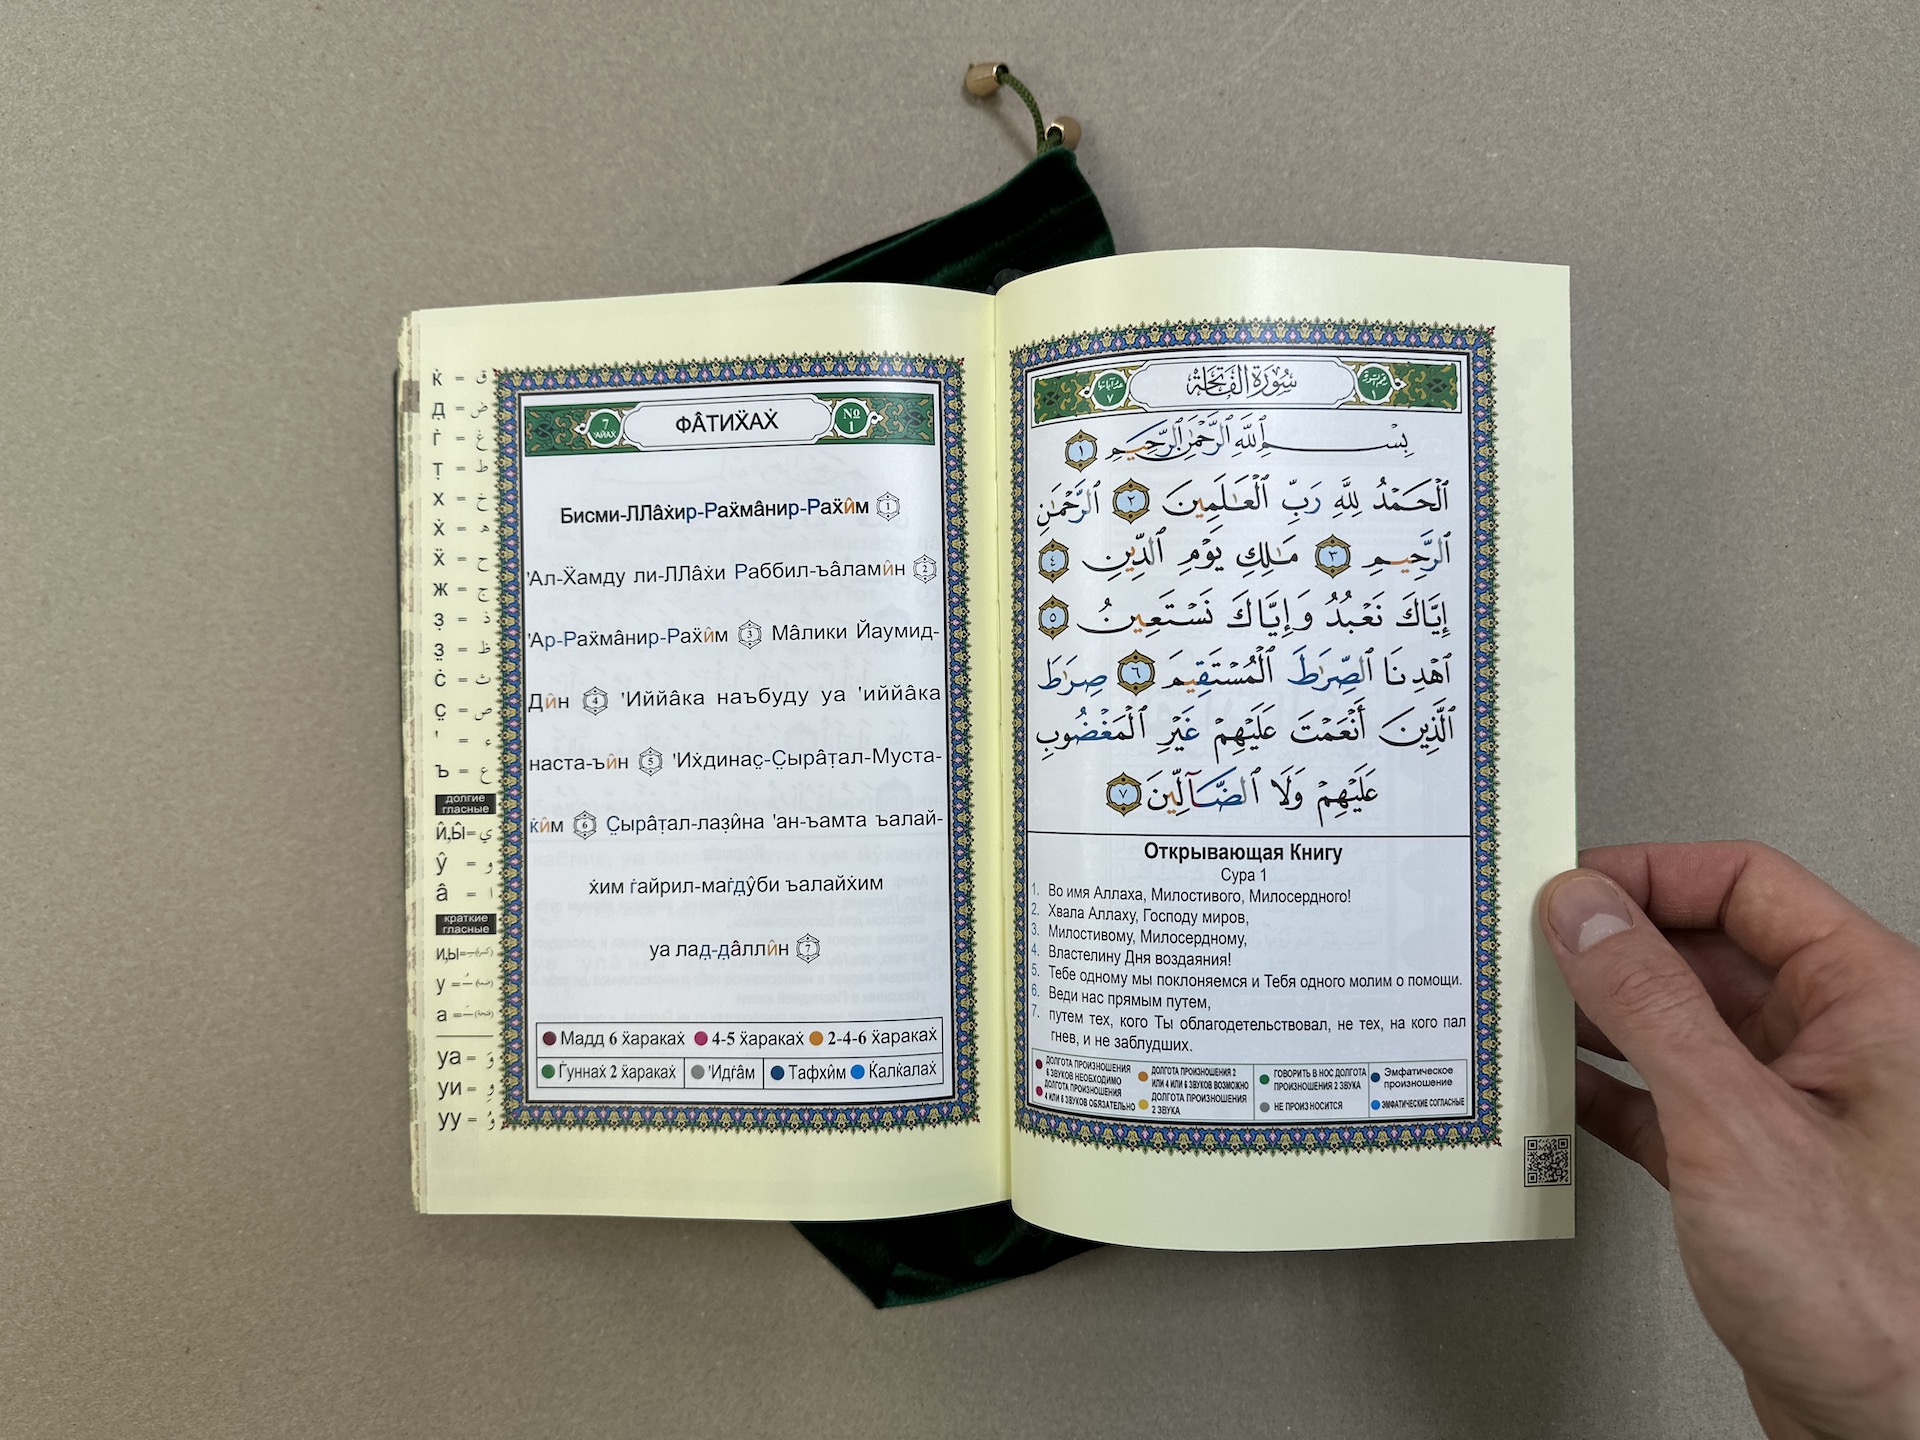 ќ = ق
д̣ = ض
ѓ = غ
ṭ = ط
х = خ
х̇ = ه
х̈ = ح
ж = ج
з̣ = ذ
з̤ = ظ
с̇ = ث
с̤ = ص
' = ء
ъ = ع
долгие
гласные
и̂,ы̂= ي
ŷ = و
â = ا
краткие
гласные
и,ы=
у =
а =
уа = وَ
уи = وِ
уу = وُ
7
'АЙАХ
ФÂТИХ̈АХ̇
№
1
Бисми-ЛЛâх̇ир-Рах̈мâнир-Рах̈и̂м 1
'Ал-Х̈амду ли-ЛЛâх̇и Раббил-ъâламӣ̂н 2
'Ар-Рах̈мâнир-Рах̈и̂м 3 Мâлики Йаумид-
Ди̂н 4 'Иййâка наъбуду уа 'иййâка
наста-ъи̂н 5 'Их̇динас̤-С̤ырâṭал-Муста-
ќи̂м 6 С̤ырâṭал-лаз̣и̂на 'ан-ъамта ъалай-
х̇им г̇айрил-маг̇д̣ŷби ъалайх̇им
уа лад̣-д̣âлли̂н 7
Мадд 6 х̈араках̇ 4-5 х̈араках̇ 2-4-6 х̈араках̇
Г̇уннах̇ 2 х̈араках̇ 'Идг̇âм Тафхи̂м Ќалќалах̇
سُورَةُ الفَاتِحَةِ
بِسْمِ ٱللَّهِ ٱلرَّحْمَٰنِ ٱلرَّحِيمِ ١
ٱلْحَمْدُ لِلَّهِ رَبِّ ٱلْعَٰلَمِينَ ٢ ٱلرَّحْمَٰنِ
ٱلرَّحِيمِ ٣ مَٰلِكِ يَوْمِ ٱلدِّينِ ٤
إِيَّاكَ نَعْبُدُ وَإِيَّاكَ نَسْتَعِينُ ٥
ٱهْدِنَا ٱلصِّرَٰطَ ٱلْمُسْتَقِيمَ ٦ صِرَٰطَ
ٱلَّذِينَ أَنْعَمْتَ عَلَيْهِمْ غَيْرِ ٱلْمَغْضُوبِ
عَلَيْهِمْ وَلَا ٱلضَّآلِّينَ ٧
Открывающая Книгу
Сура 1
1. Во имя Аллаха, Милостивого, Милосердного!
2. Хвала Аллаху, Господу миров,
3. Милостивому, Милосердному,
4. Властелину Дня воздаяния!
5. Тебе одному мы поклоняемся и Тебя одного молим о помощи.
6. Веди нас прямым путем,
7. путем тех, кого Ты облагодетельствовал, не тех, на кого пал
гнев, и не заблудших.
ДОЛГОТА ПРОИЗНОШЕНИЯ
6 ЗВУКОВ НЕОБХОДИМО
ДОЛГОТА ПРОИЗНОШЕНИЯ
4 ИЛИ 6 ЗВУКОВ ОБЯЗАТЕЛЬНО
ДОЛГОТА ПРОИЗНОШЕНИЯ 2
ИЛИ 4 ИЛИ 6 ЗВУКОВ ВОЗМОЖНО
ДОЛГОТА ПРОИЗНОШЕНИЯ
2 ЗВУКА
ГОВОРИТЬ В НОС ДОЛГОТА
ПРОИЗНОШЕНИЯ 2 ЗВУКА
НЕ ПРОИЗНОСИТСЯ
Эмфатическое
произношение
ЭМФАТИЧЕСКИЕ СОГЛАСНЫЕ